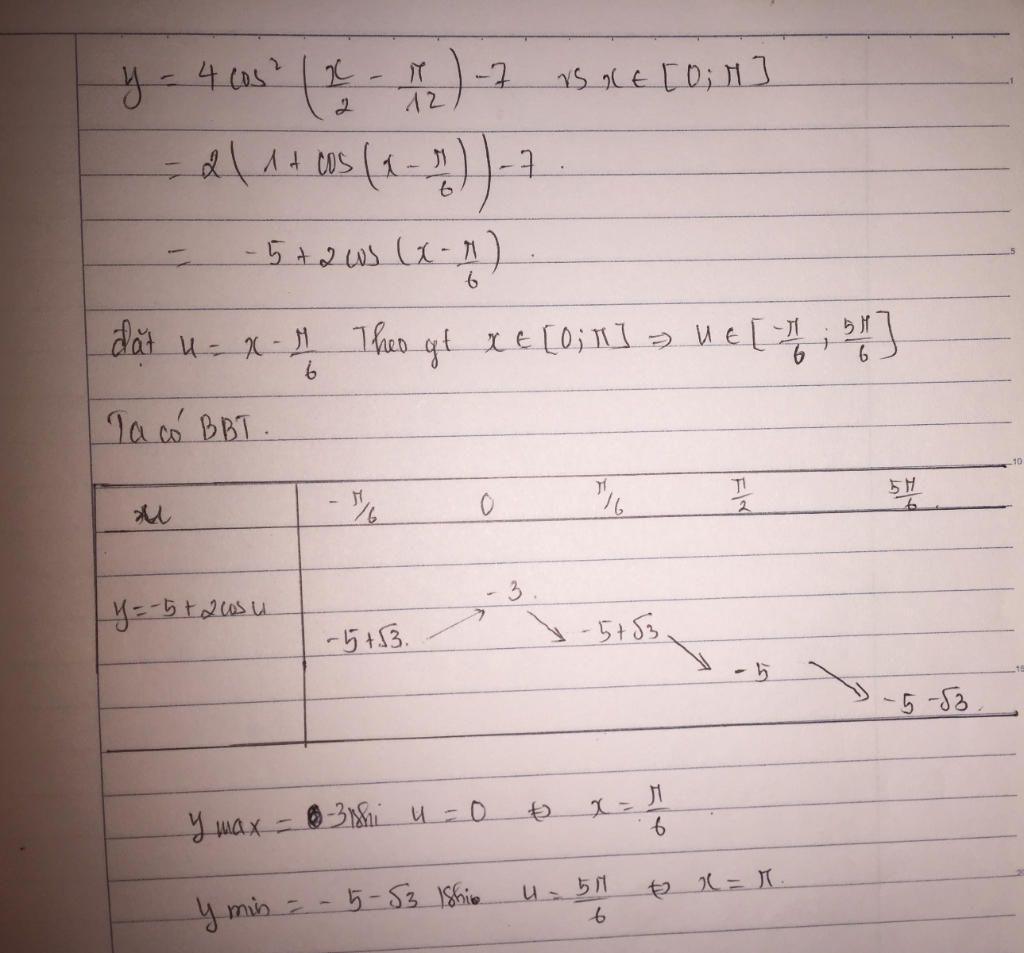 y = 4 cos² (x/2 - π/12) - 7 vs x ∈ [0; π]
= 2(1 + cos(x - π/6)) - 7.
= -5 + 2 cos (x - π/6).
đặt u = x - π/6 Theo gt x ∈ [0; π] ⇒ u ∈ [-π/6 ; 5π/6]
Ta có BBT.
u -π/6 0 π/6 π/2 5π/6
y = -5 + 2 cos u
-3.
-5+√3. ↗ ↘ -5+√3 ↘
-5 ↘
-5-√3.
y max = -3 khi u = 0 ⇔ x = π/6.
y min = -5-√3 khi u = 5π/6 ⇔ x = π.
1
5
10
15
20